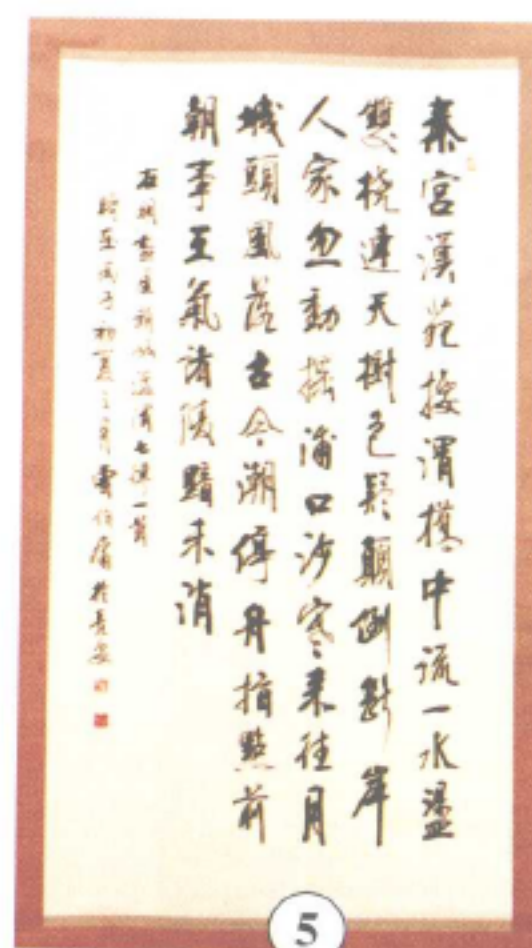 秦宮漢苑接渭橋中流一水盪
雙橈連天樹色疑顛倒斷岸
人家忽動搖浦口沙寒來往月
城頭風落古今潮停舟指點前
朝事王氣諸陵黯未消
七律一首
初夏之
於長安
5